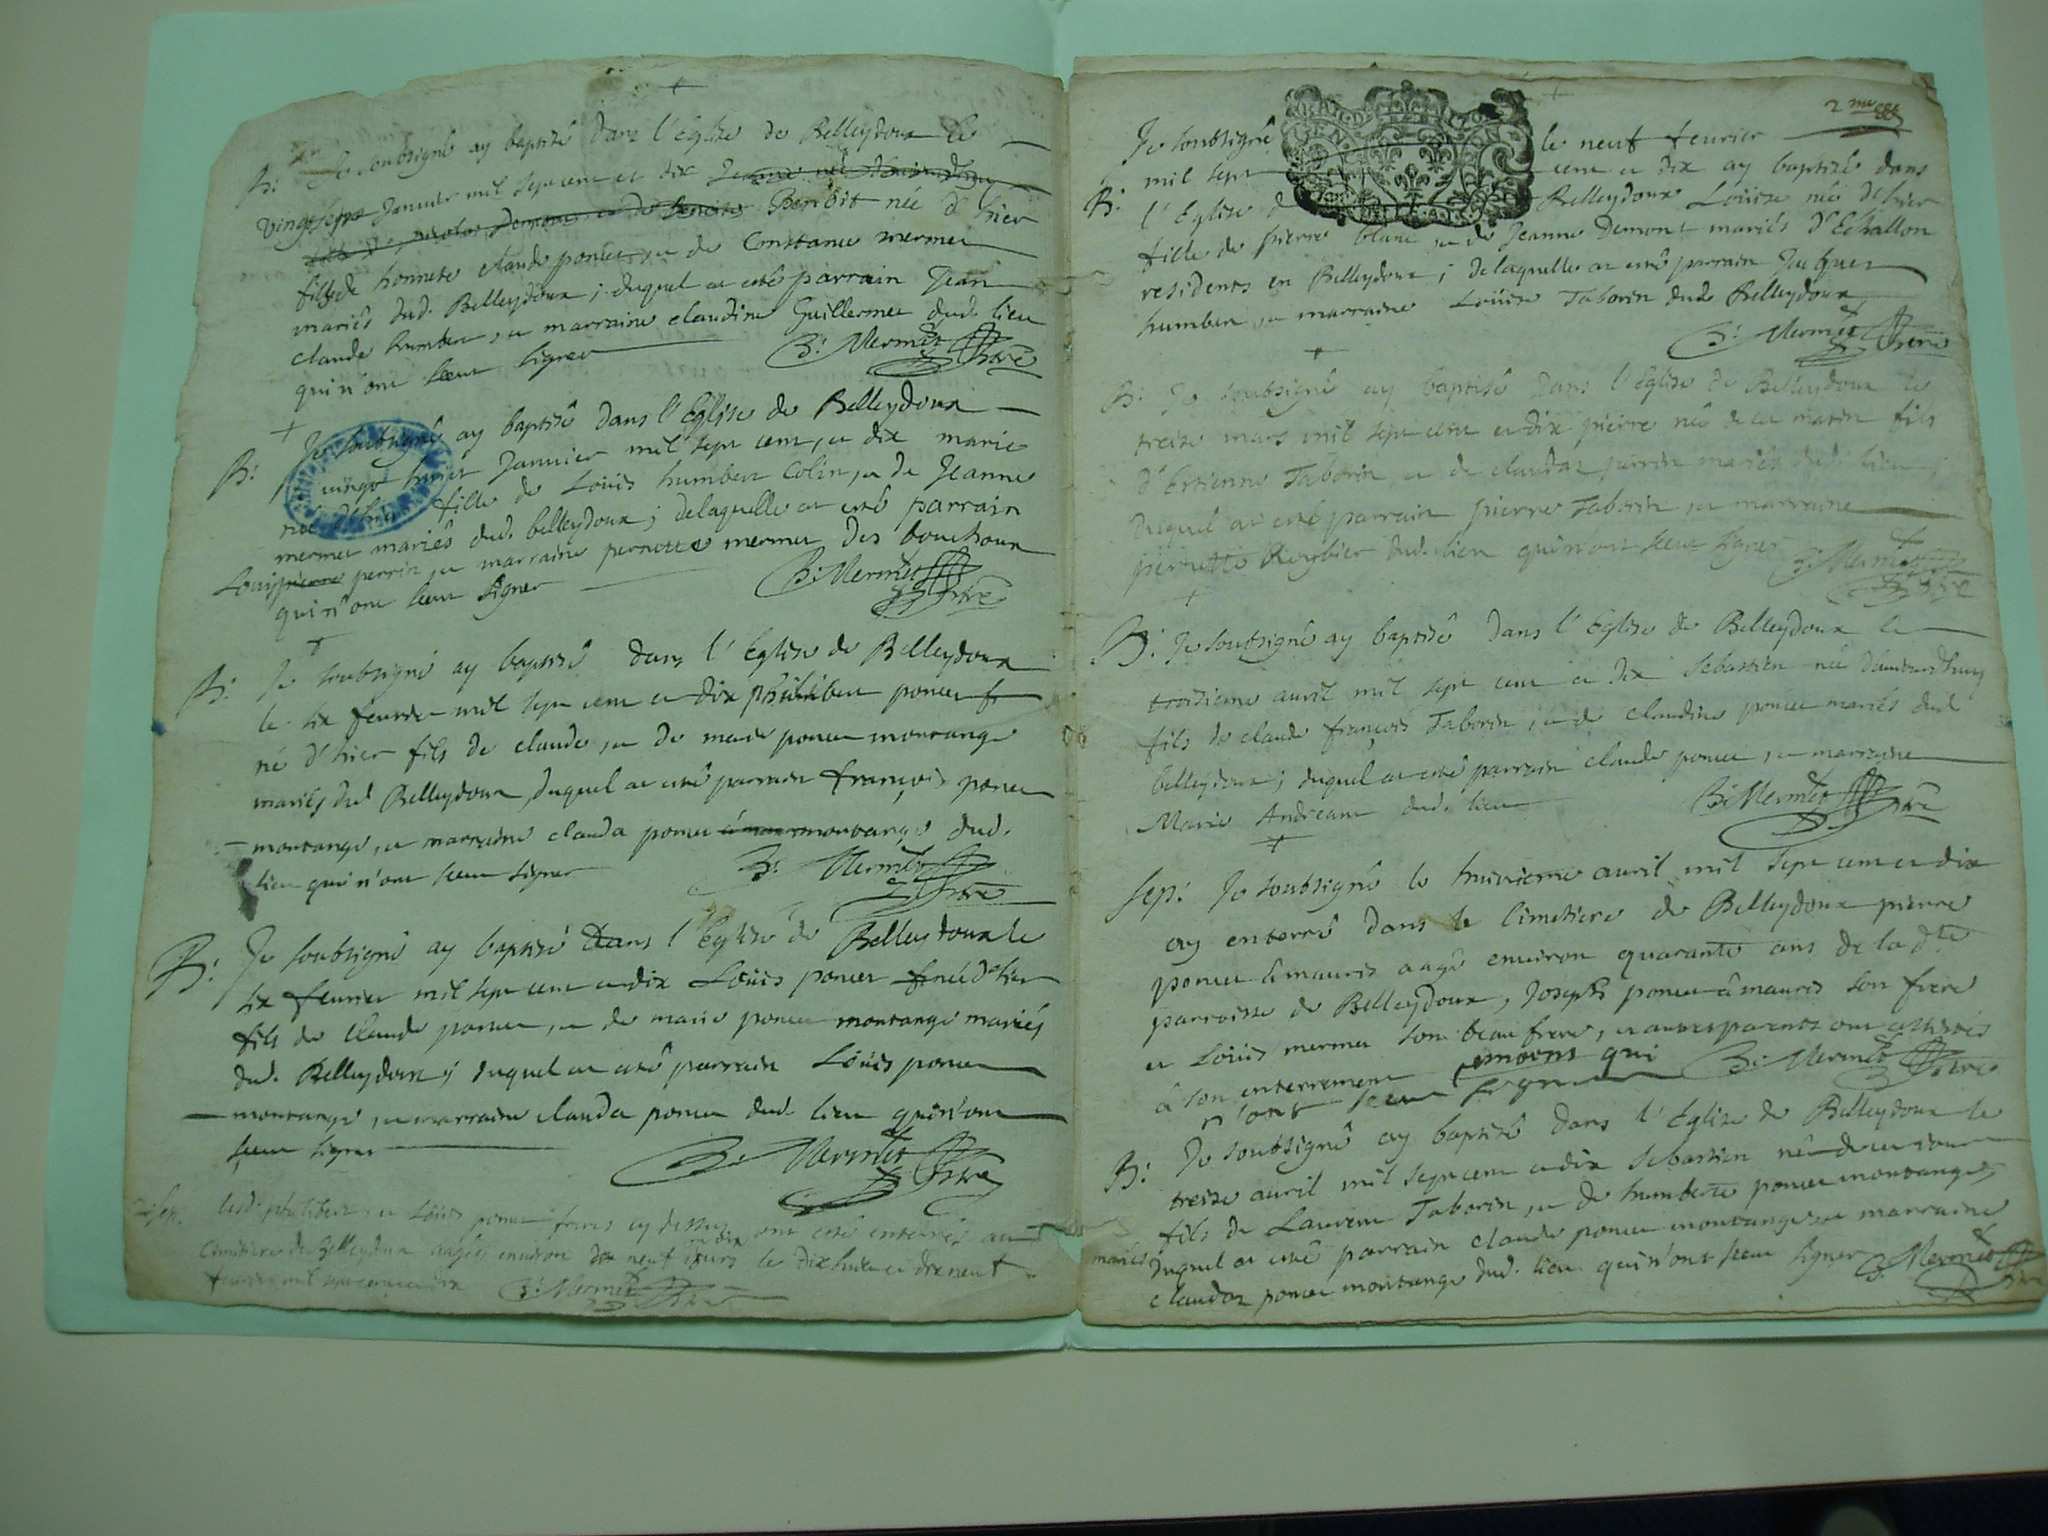 B: Je soubsigné ay baptisé dans l'Eglise de Belleydoux le
vingt sept Janvier mil sept cent et dix
Benoit née d'hier
fils de honneste claude poncet, et de Constance mermet
mariés dud. Belleydoux ; duquel at esté parrain Jean
claude humbert, et marraine claudine Guillermet dud. lieu
qui n'ont sceut signer B: Mermet Ptre
B: Je soubsigné ay baptisé dans l'Eglise de Belleydoux
vingt huict Janvier mil sept cent, et dix marie
née d'hier fille de Loüis humbert Colin, et de Jeanne
mermet mariés dud. belleydoux ; delaquelle at esté parrain
Louis pierre perrin, et marraine pernette mermet des bouchoux
qui n'ont sceut signer B: Mermet Ptre
B: Je soubsigné ay baptisé dans l'Eglise de Belleydoux
le six feuvrier mil sept cent et dix philibert poncet
né d'hier fils de claude, et de marie poncet montange
mariés dud. Belleydoux, duquel at esté parrain françois poncet
montange, et marraine clauda poncet montange dud.
lieu qui n'ont sceut signer B: Mermet Ptre
B: Je soubsigné ay baptisé dans l'Eglise de Belleydoux le
six feuvrier mil sept cent et dix Loüis poncet née d'hier
fils de claude poncet, et de marie poncet montange mariés
dud. Belleydoux ; duquel at esté parrain Loüis poncet
montange, et marraine clauda poncet dud. lieu qui n'ont
sceut signer B: Mermet Ptre
sep. lesd. philibert, et Loüis poncet freres cy dessus ont esté enterrés au
Cimitiere de Belleydoux aagés environ de neuf jours le dixhuit et dixneuf
feuvrier mil sept cent et dix B: Mermet Ptre
2me
Je soubsigné le neuf feuvrier
mil sept cent et dix ay baptisé dans
B: l'Eglise de Belleydoux Loüise née d'hier
fille de pierre blanc, et de Jeanne Demont mariés d'Echallon
residents en Belleydoux ; delaquelle at esté parrain Jacques
humbert, et marraine Loüise Taborin dud. Belleydoux
B: Mermet Ptre
B: Je soubsigné ay baptisé dans l'Eglise de Belleydoux le
treize mars mil sept cent et dix pierre né de ce matin fils
d'Estienne Taborin, et de claudaz perrin mariés dud. lieu ;
duquel at esté parrain pierre Taborin, et marraine
pierrette Reybier dud. lieu qui n'ont sceut signer B: Mermet Ptre
B: Je soubsigné ay baptisé dans l'Eglise de Belleydoux le
troisieme avril mil sept cent et dix Sebastien née d'aujourdhuy
fils de claude françois Taborin, et de claudine poncet mariés dud.
belleydoux ; duquel at esté parrain claude poncet, et marrayne
Marie Andreane dud. lieu B: Mermet Ptre
sep: Je soubsigné le huitieme avril mil sept cent et dix
ay enterré dans le Cimetiere de Belleydoux pierre
poncet à mauris aagé environ quarante ans de la dte
parroisse de Belleydoux, Joseph poncet à mauris son frere
et Loüis mermet son beau frere, et autres parents ont assistés
à son enterrement temoins qui
n'ont sceut signer B: Mermet Ptre
B: Je soubsigné ay baptisé dans l'Eglise de Belleydoux le
treize avril mil sept cent et dix Sebastien né de ce jour
fils de Laurent Taborin, et de humberte poncet montange,
mariés duquel at esté parrain claude poncet montange et marraine
claudaz poncet montange dud. lieu qui n'ont sceut signer B: Mermet Ptre